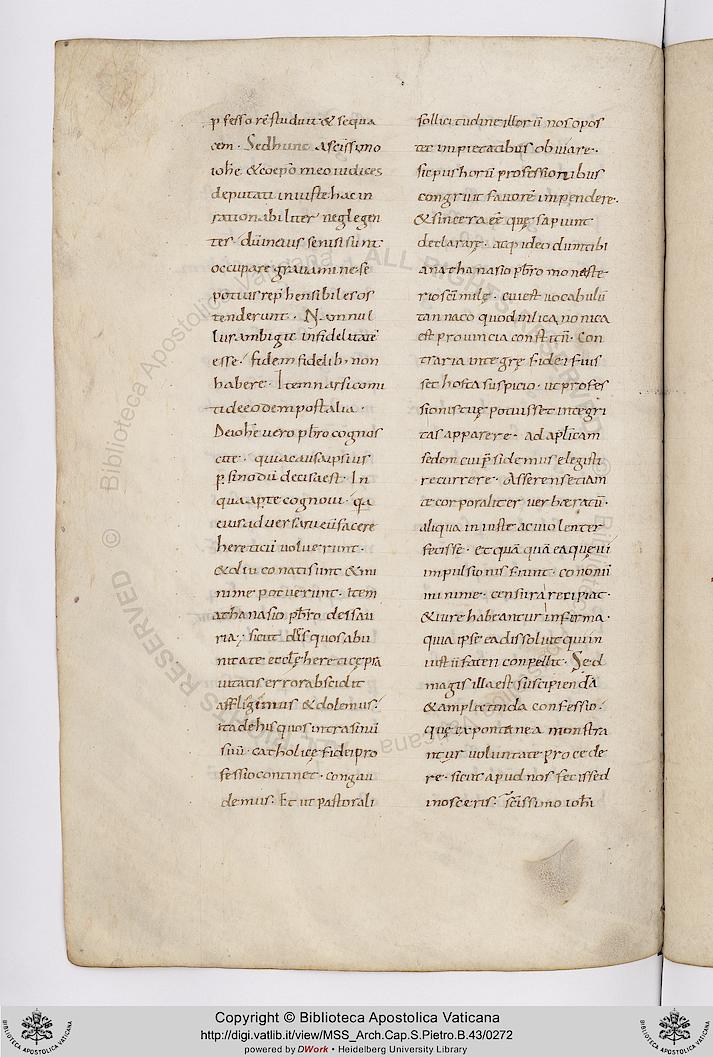 p fessorē studuit & sequa
cem · Sed hunc a scīssimo
ioħe & coepō meo iudices
deputati iniuste hac in
rationabiliter neglegen
ter dū incius sensi sunt
occupare gravamine se
potius rep̄hensibiles os
tenderunt · Nonnul
lur ambigit infidelitatē
esse · fidem fidelib; non
habere · Item narsi comi
ti de eodem post alia ·
De ioħe vero pb̄ro cognos
cite · quia causa ipsius
p̱ sinodū decisa est · In
qua ap̱te cognovi · qa
eius adversarii eū facere
hereticū voluerunt ·
& diu conati sunt & mi
nime potuerunt · Item
athanasio pb̄ro de isau
ria · sicut d̄s quos ab u
nitate eccl̄ę hereticę pra
vitatis error abscidit
affligimus & dolemus ·
ita de his quos intra sinū
suū · catholicę fidei pro
fessio continet · congau
demus · Et ut pastorali
sollicitudine illorū nos opor
tet impietatibus obviare ·
sic pus horū professionibus
congruit favorē impendere ·
& sincera eē quę sapiunt
declarare · atq ideo dum tibi
athanasio pb̄ro monaste
rio scī milę · cui est vocabulū
tannaco quod in licaonica
est provincia constitū · Con
traria integrę fidei fuis
set horta suspicio · ut profes
sionis tuę potuisset integri
tas apparere · ad ap̄licam
sedem cui p̱sidemus elegisti
recurrere · Asserens etiam
te corporaliter verbæratū ·
aliqua iniuste ac violenter
fecisse · et quā quā ea quę vi
impulsionis fiunt · canonū
minime · censura recipiat ·
& iure habeantur infirma ·
quia ipse ea dissolvit qui in
iustū fateri conpellit · Sed
magis illa est suscipienda
& amplectenda confessio ·
quę ex spontanea monstra
ntur voluntate procede
re · sicut apud nos fecissed
inosceris · Scīssimo ioħi
© Biblioteca Apostolica Vaticana ALL RIGHTS RESERVED
Copyright © Biblioteca Apostolica Vaticana
http://digi.vatlib.it/view/MSS_Arch.Cap.S.Pietro.B.43/0272
powered by DWork • Heidelberg University Library